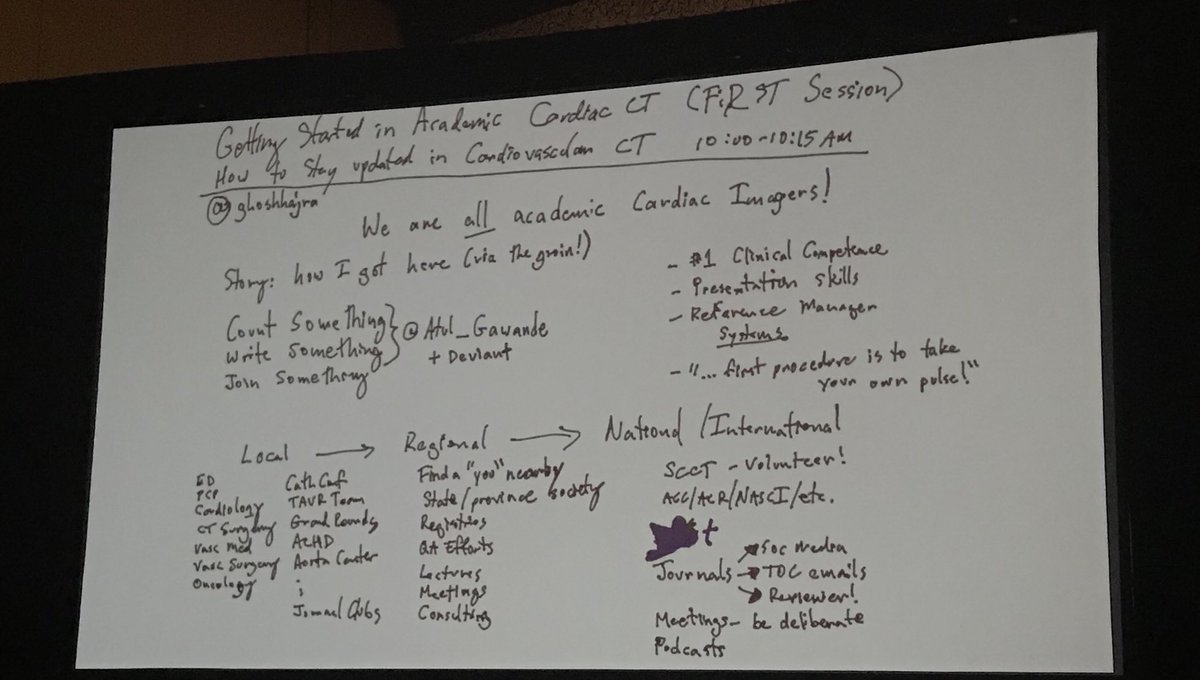 Getting Started in Academic Cardiac CT (FiRST Session)
How to Stay updated in Cardiovascular CT 10:00-10:15 AM
@ghoshhajra
We are all academic Cardiac Imagers!
Story: how I got here (via the groin!)
Count Something
Write Something
Join Something
@Atul_Gawande
+ Deviant
- #1 Clinical Competence
- Presentation skills
- Reference Manager
Systems
- "... first procedure is to take
your own pulse!"
Local → Regional → National/International
ED
PCP
Cardiology
CT Surgery
Vasc Med
Vasc Surgery
Oncology
Cath Conf
TAVR Team
Grand Rounds
ACHD
Aorta Center
:
Journal Clubs
Find a "you" nearby
State/province society
Registries
QA Efforts
Lectures
Meetings
Consulting
SCCT - Volunteer!
ACC/ACR/NASCI/etc.
t
Journals → Soc Media
→ TOC emails
→ Reviewer!
Meetings - be deliberate
Podcasts